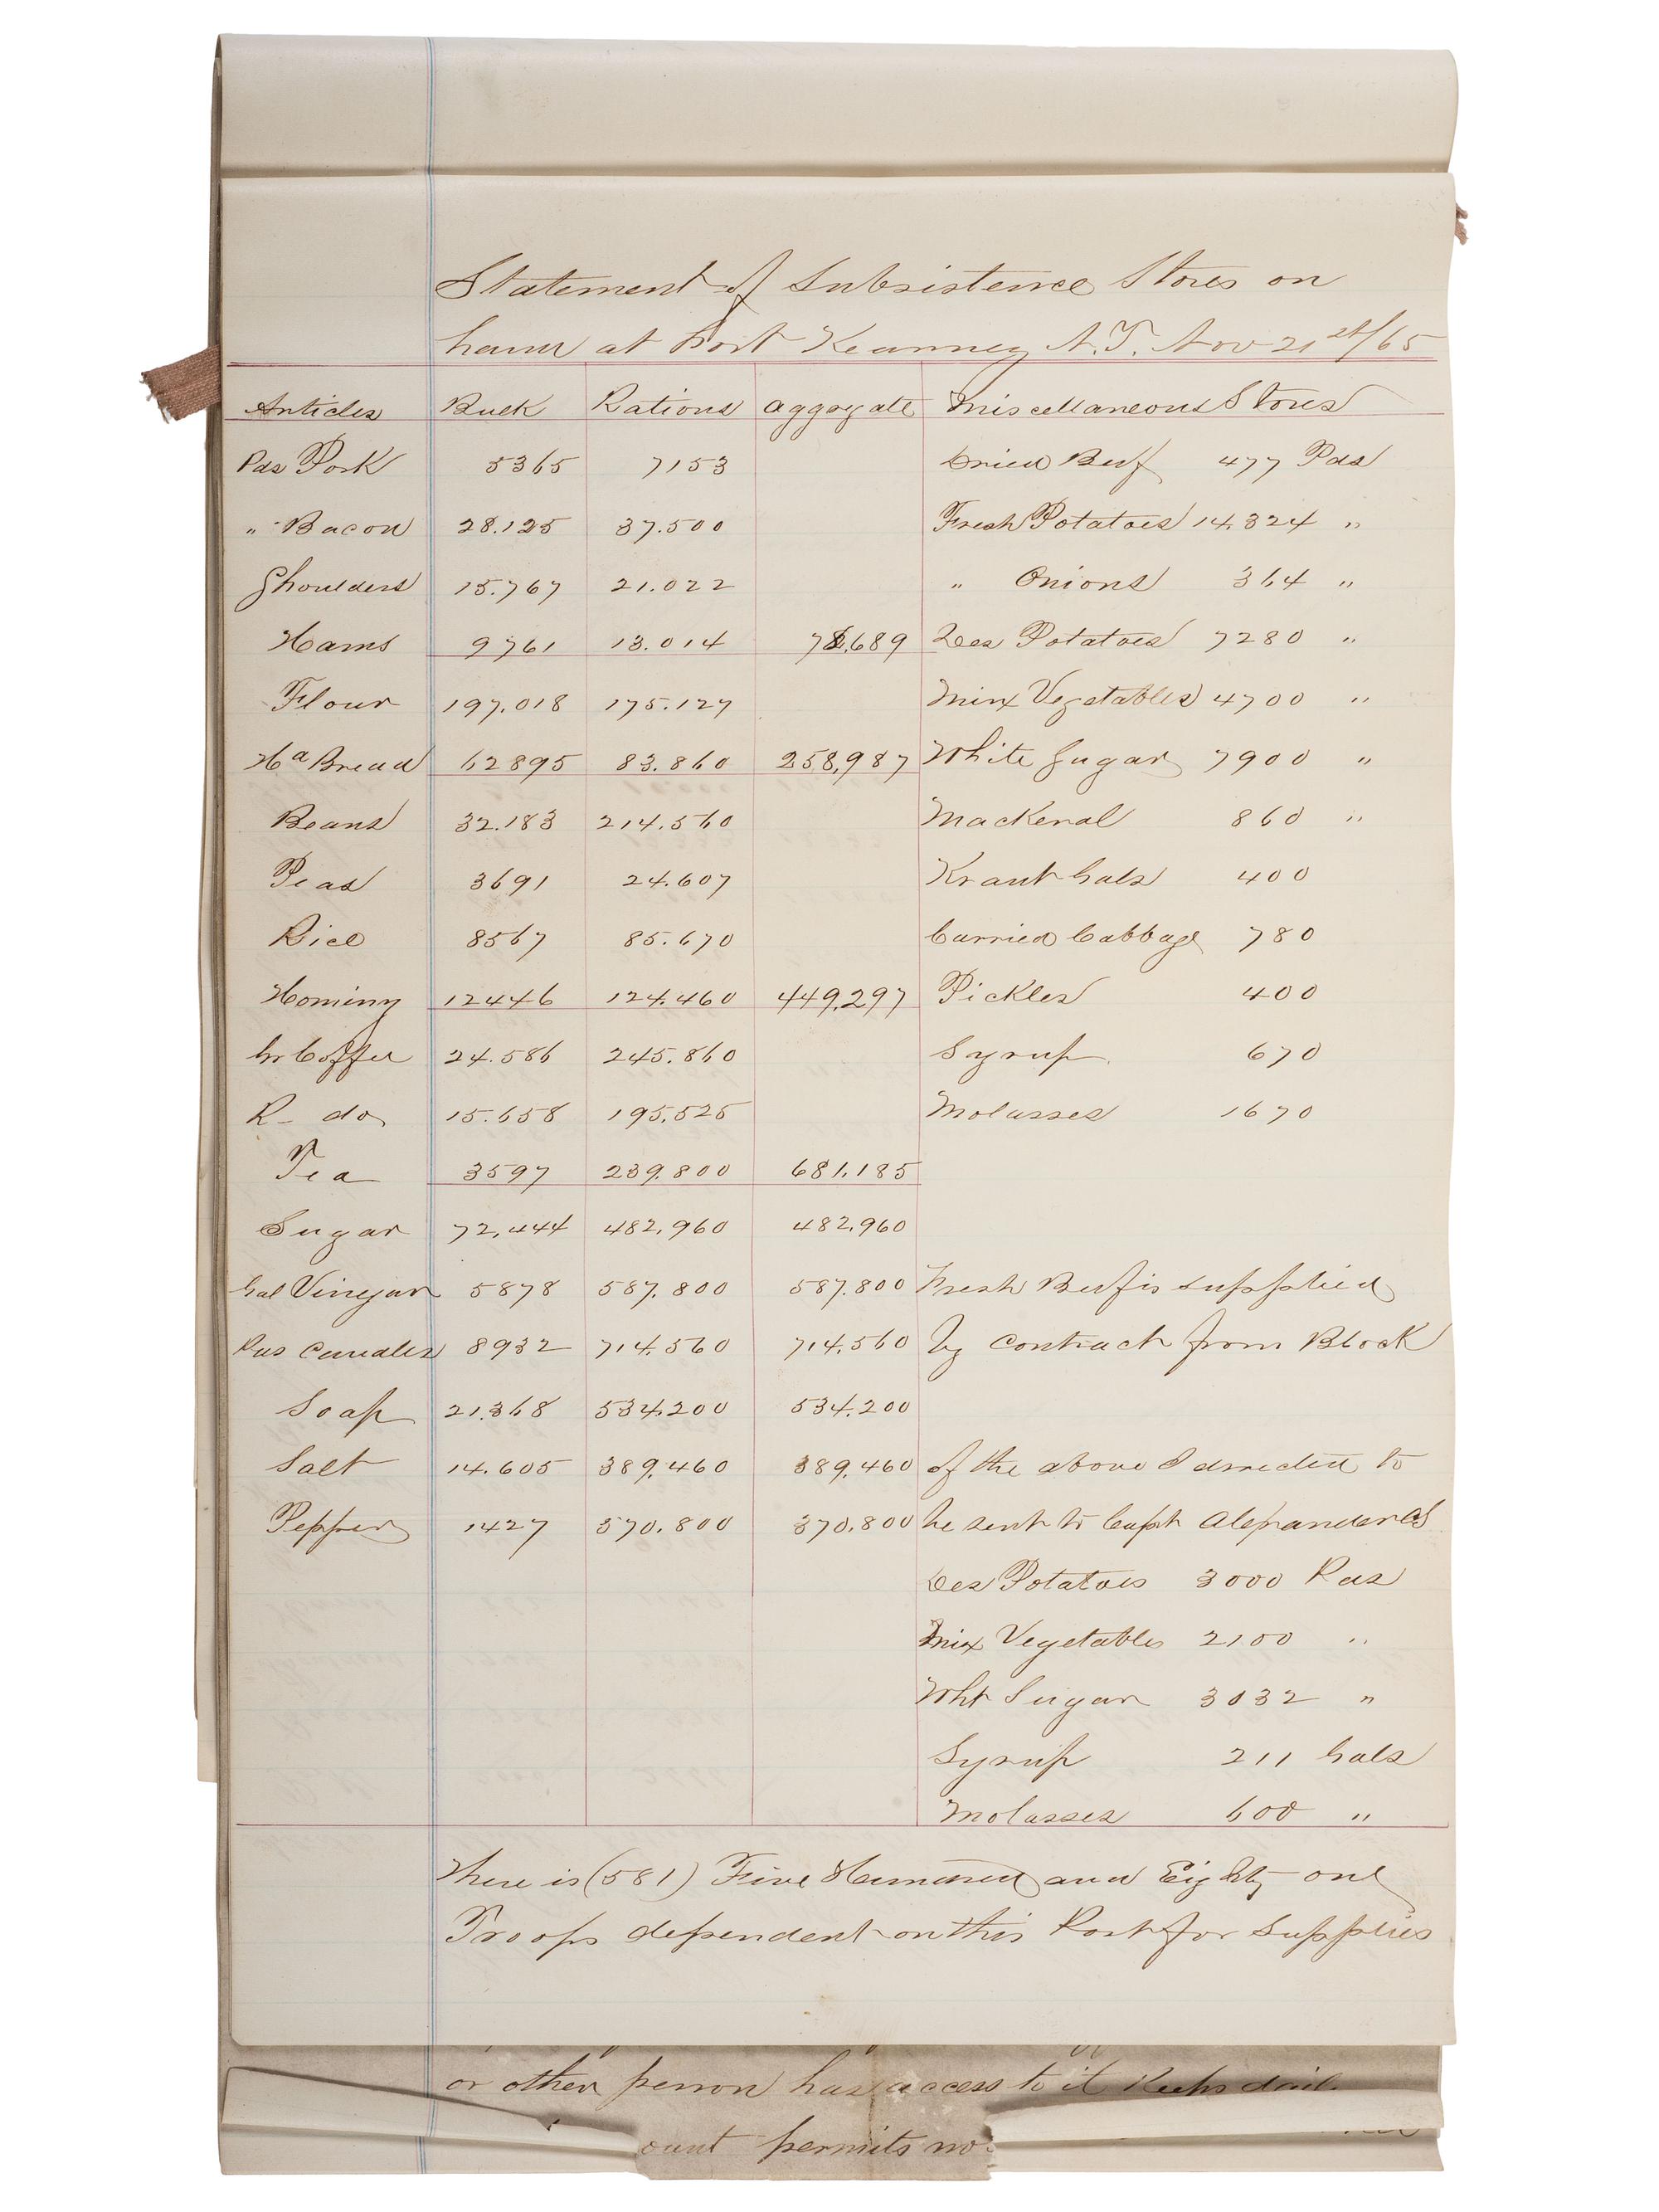 Statement of Subsistence Stores on
hand at Fort Kearney N.T. Nov 21st/65
Articles Bulk Rations aggregate Miscellaneous Stores
Pds Pork 5365 7153 Dried Beef 477 Pds
" Bacon 28.125 37.500 Fresh Potatoes 14,324 "
Shoulders 15.767 21.022 " Onions 364 "
Hams 9761 13.014 78,689 Des Potatoes 7280 "
Flour 197,018 175.127 Mix Vegetables 4700 "
Hd Bread 62895 83.860 258,987 White Sugar 7900 "
Beans 32.183 214.560 Mackeral 860 "
Peas 3691 24.607 Kraut Gals 400
Rice 8567 85.670 Curried Cabbage 780
Hominy 12446 124.460 449,297 Pickles 400
Gr Coffee 24.586 245.860 Syrup 670
R - do 15.658 195,525 Molasses 1670
Tea 3597 239.800 681,185
Sugar 72,444 482,960 482,960
Gal Vinegar 5878 587.800 587.800 Fresh Beef is supplied
Pds Candles 8932 714.560 714,560 by contract from Block
Soap 21.368 534,200 534.200
Salt 14.605 389,460 389,460 of the above I directed to
Pepper 1427 570.800 370.800 be sent to Capt Alexander CS
Des Potatoes 3000 Pds
Mix Vegetables 2100 "
Wht Sugar 3032 "
Syrup 211 Gals
Molasses 600 "
There is (581) Five Hundred and Eighty one
Troops dependent on this Post for Supplies
or other person has access to it Keeps
ount permits no